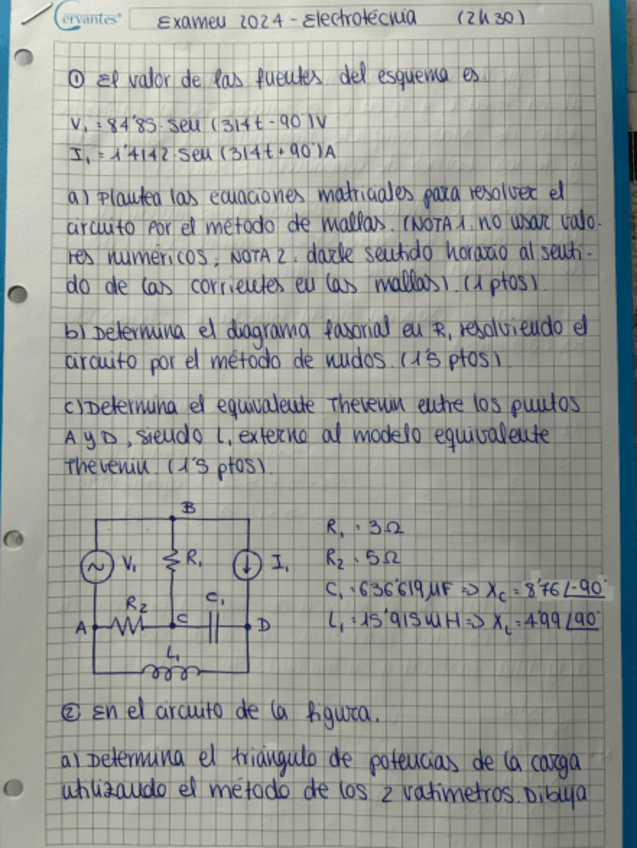 Cervantes
Examen 2024 - Electrotécnia (2h30)
① El valor de las fuentes del esquema es
V₁ = 84'85 · sen (314t - 90°) V
I₁ = 1'4142 · sen (314t + 90°) A
a) Plantea las ecuaciones matriciales para resolver el
circuito por el método de mallas. (NOTA 1. no usar valo-
res numéricos, NOTA 2. darle sentido horario al senti-
do de las corrientes en las mallas). (1 ptos)
b) Determina el diagrama fasorial en R₁ resolviendo el
circuito por el método de nudos. (1'5 ptos)
c) Determina el equivalente Thevenin entre los puntos
A y D, siendo L₁ externo al modelo equivalente
Thevenin. (1'5 ptos)
B
R₁ = 3Ω
V₁ R₁ I₁
R₂ = 5Ω
C₁ = 636'619 μF => Xc = 8'76 ∠-90°
R₂ C₁
A C D
L₁ = 15'915 mH => XL = 4'99 ∠90°
L₁
② En el circuito de la figura.
a) Determina el triángulo de potencias de la carga
utilizando el método de los 2 vatímetros. Dibuja